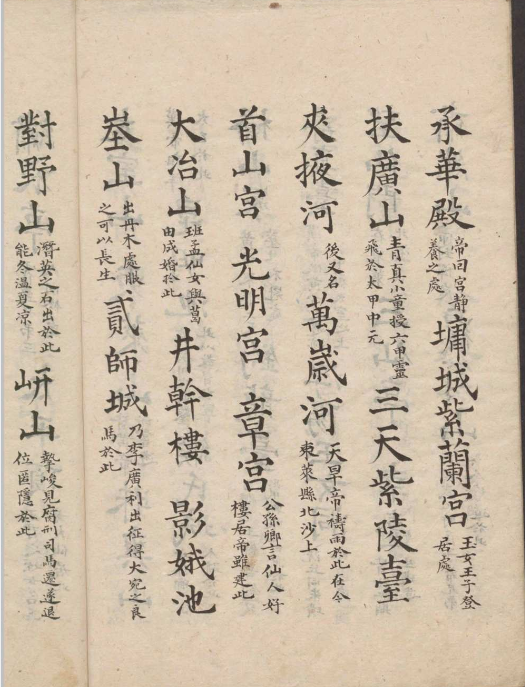 承華殿 帝回宮靜養之處 墉城紫蘭宮 王女王子登居處
扶廣山 青真小童授六甲靈飛於太甲申元 三天紫陵臺
夾掖河 後又名 萬歲河 天旱帝禱雨於此在今東萊縣北沙上
首山宮 光明宮 章宮 公孫卿言仙人好樓居帝雖建此
大冶山 班孟仙女與葛由成婚於此 井幹樓 影娥池
峚山 出丹木處服之可以長生 貳師城 乃李廣利出征得大宛之良馬於此
對野山 潛英之石出於此能冬溫夏凉 岍山 摯峻見腐刑司馬遷遂退位匿隱於此